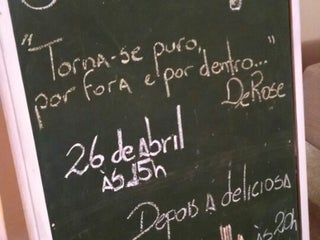 "Torna-se puro,
por fora e por dentro..."
DeRose
26 de Abril
às 15h
Depois a deliciosa
às 20h